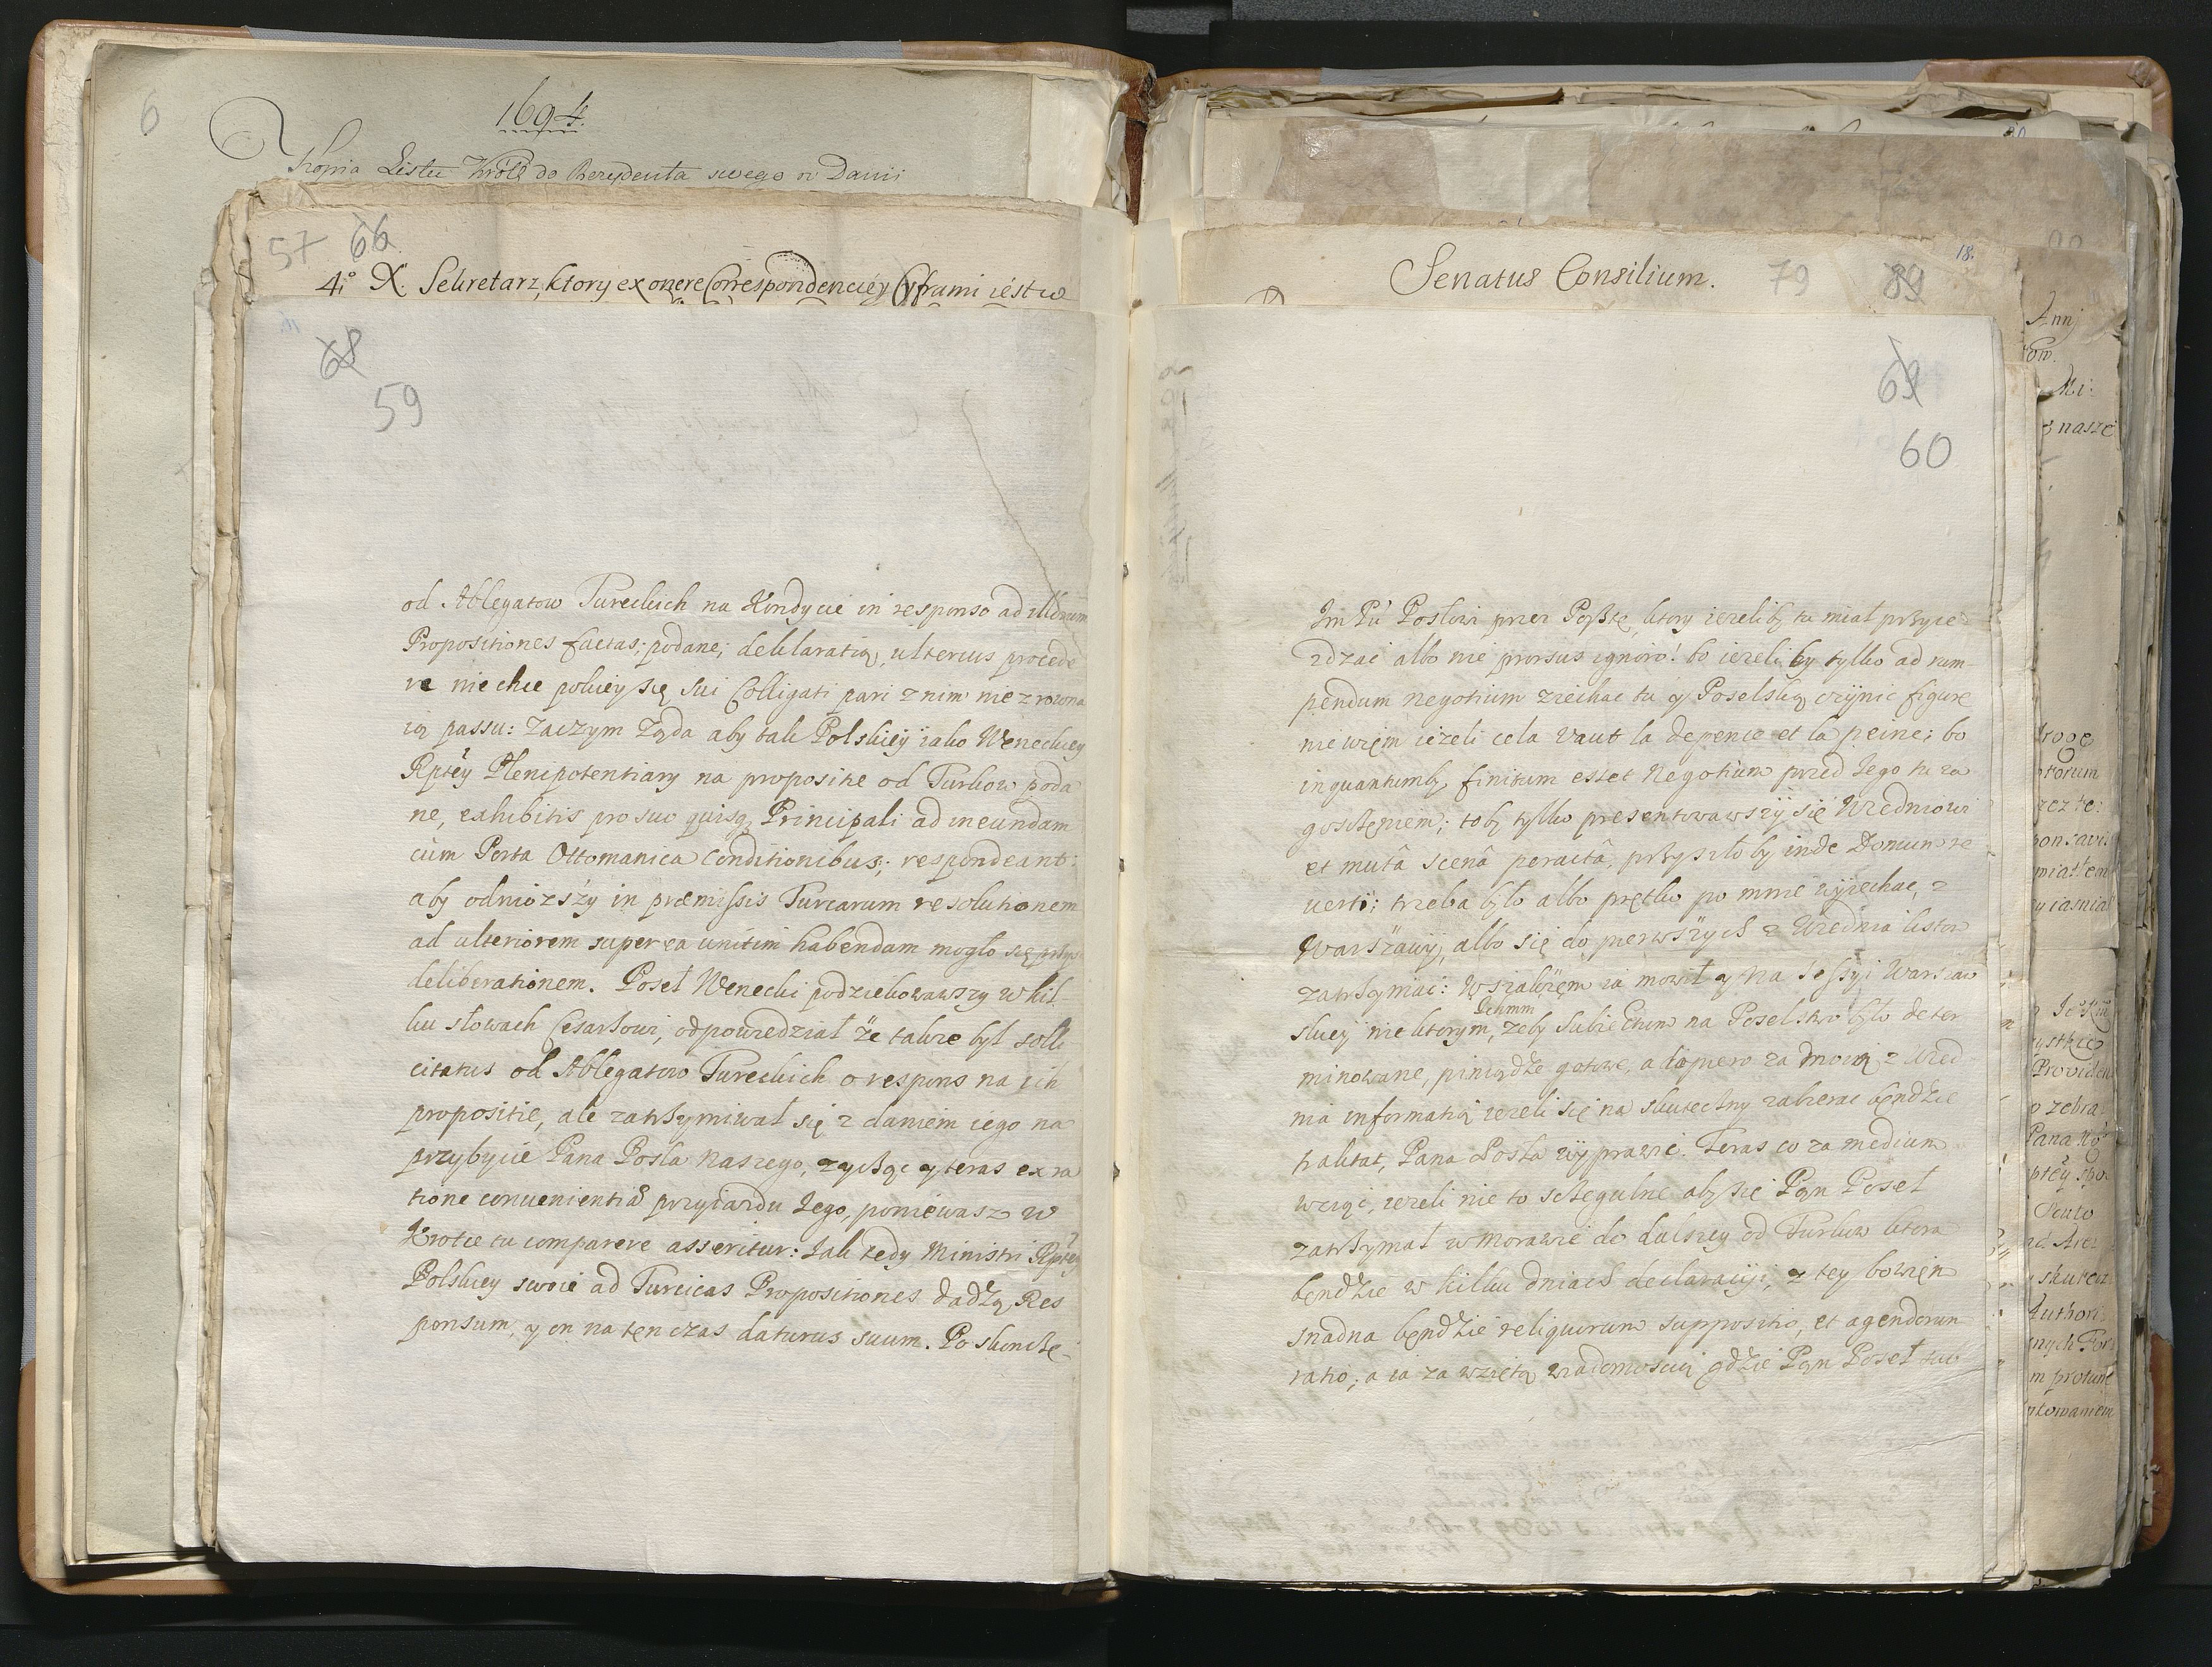 6
1694.
Kopia Listu Króla do Rezydenta swego w Danii
57 66
4to X. Sekretarz, ktory ex onere Correspondenciey Cyframi iest w
68
59
od Ablegatow Tureckich na Kondycie in responso ad illorum
Propositiones factas; podane; deklaratią, ulterius procede
re nie chce pokiey się sui Colligati pari z nim nie zrowna
ią passu: Zaczym Ząda aby tak Polskiey iako Weneckiey
Rptey Plenipotentiary na proposite od Turkow poda
ne, exhibitis pro suo quisq Principali ad ineundam
cum Porta Ottomanica Conditionibus; respondeant:
aby odniozszy in præmissis Turcarum resolutionem
ad ulteriorem super ea unitim habendam mogło się przys
deliberationem. Poseł Wenecki podziekowawszy w kil-
ku słowach Cesarzowi, odpowiedział że takze był solli
citatus od Ablegatow Tureckich o respons na ich
propositie, ale zatrzymiwał się z daniem iego na
przybycie Pana Posła naszego, zycząc y teras ex ra
tione convenientiæ przyiazdu Iego, poniewasz w
Krotce tu comparere asseritur: Iak tedy Ministri Rptey
Polskiey swoie ad Turcicas Propositiones dadzą Res
ponsum, y on na ten czas daturus suum. Po skoncze-
Senatus Consilium. 79 89 18.
69
60
Im Pu Posłowi przez Posztę, ktory iezeliby tu miał przyie-
zdzac albo nie prorsus ignoro! bo iezeli by tylko ad rum-
pendum negotium ziechac tu y Poselską czynic figurę
nie wiem iezeli cela vaut la depence et la peine; bo
inquantumby finitum esset Negotium przed Iego tu za
goszczeniem; toby tylko presentowawszy się Wiedniowi
et mutâ scenâ peractâ, przyszłoby inde Domum re
verti; trzeba było albo prętko po mnie wyiechac, z
Warszawy, albo się do pierwszych z Wiednia listow
zatrzymac: Wszakzem ia mowił y na Sessyi Warszaw
skiey niektorym, zeby Subiectum na Poselstwo było deter
Ichmm
minowane, piniądze gotowe, a dopiero za moią z Wied
nia informatią iezeli się na skuteczny zabierac będzie
traktat, Pana Posła wyprawic. Teras co za medium
wziąc, iezeli nie to sczegulne aby się Pan Poseł
zatrzymał w Morawie do dalszey od Turkow ktora
będzie w kilku dniach declaracyi, z tey bowiem
snadna będzie reliquorum suppositio, et agendorum
ratio; a ia za wziętą wiadomoscią gdzie Pan Poseł
Annj
nasze